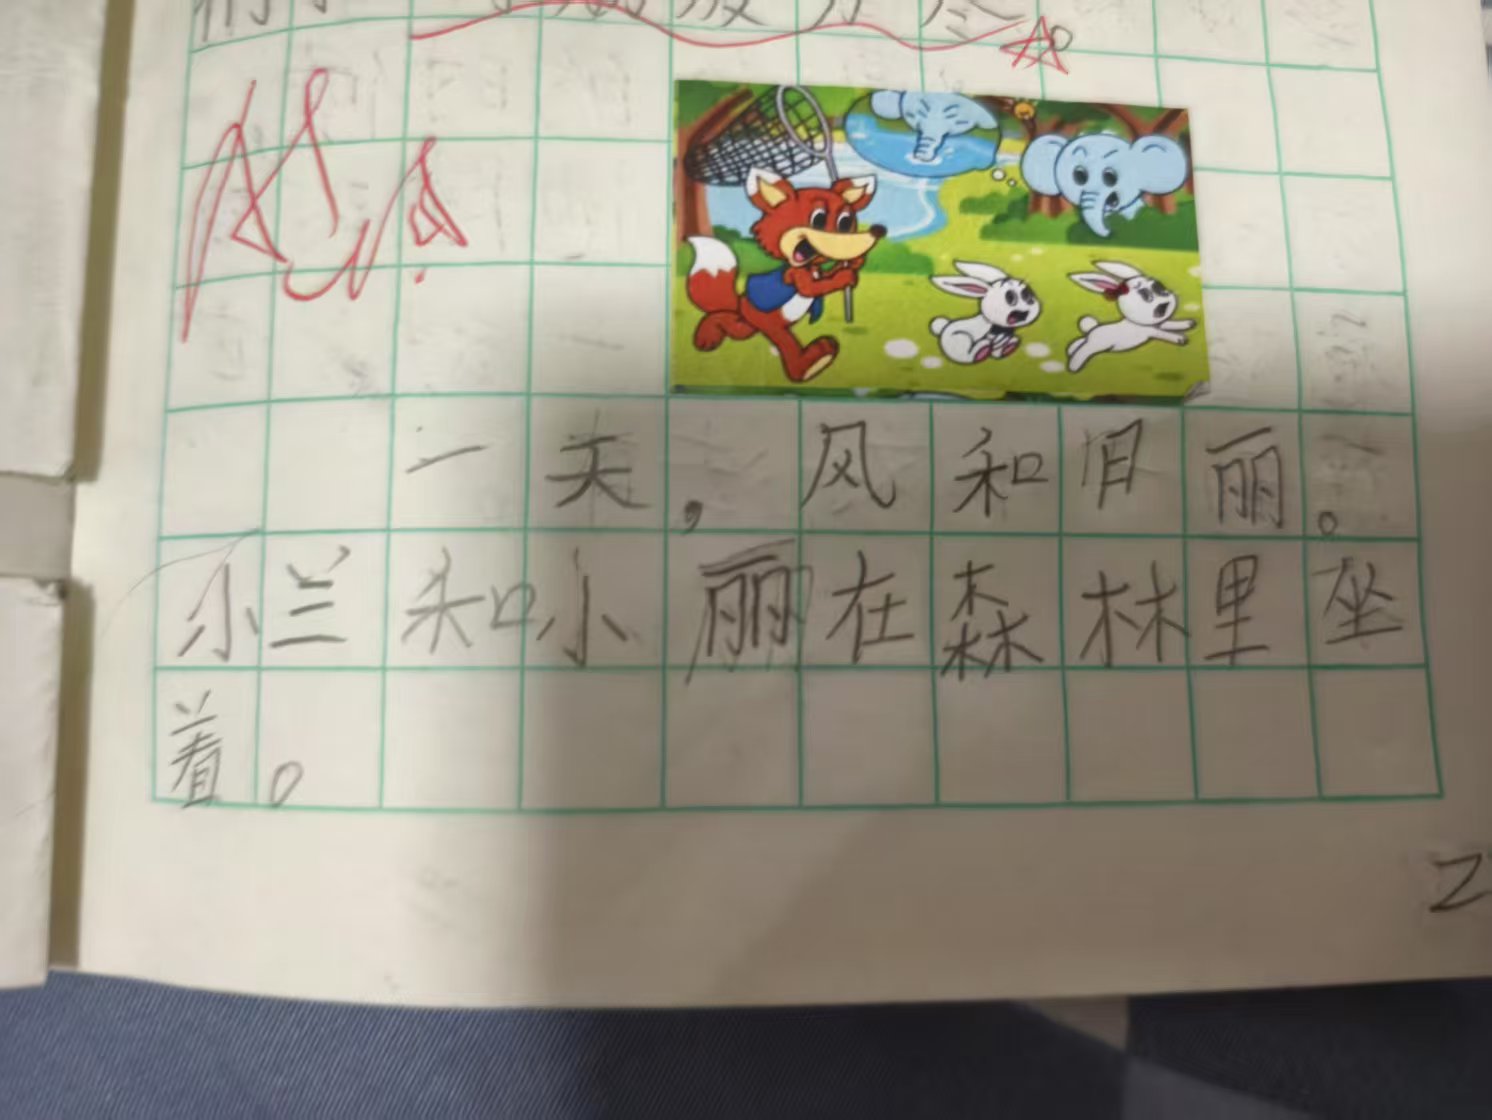 一天，风和日丽。
小兰和小丽在森林里坐
着。